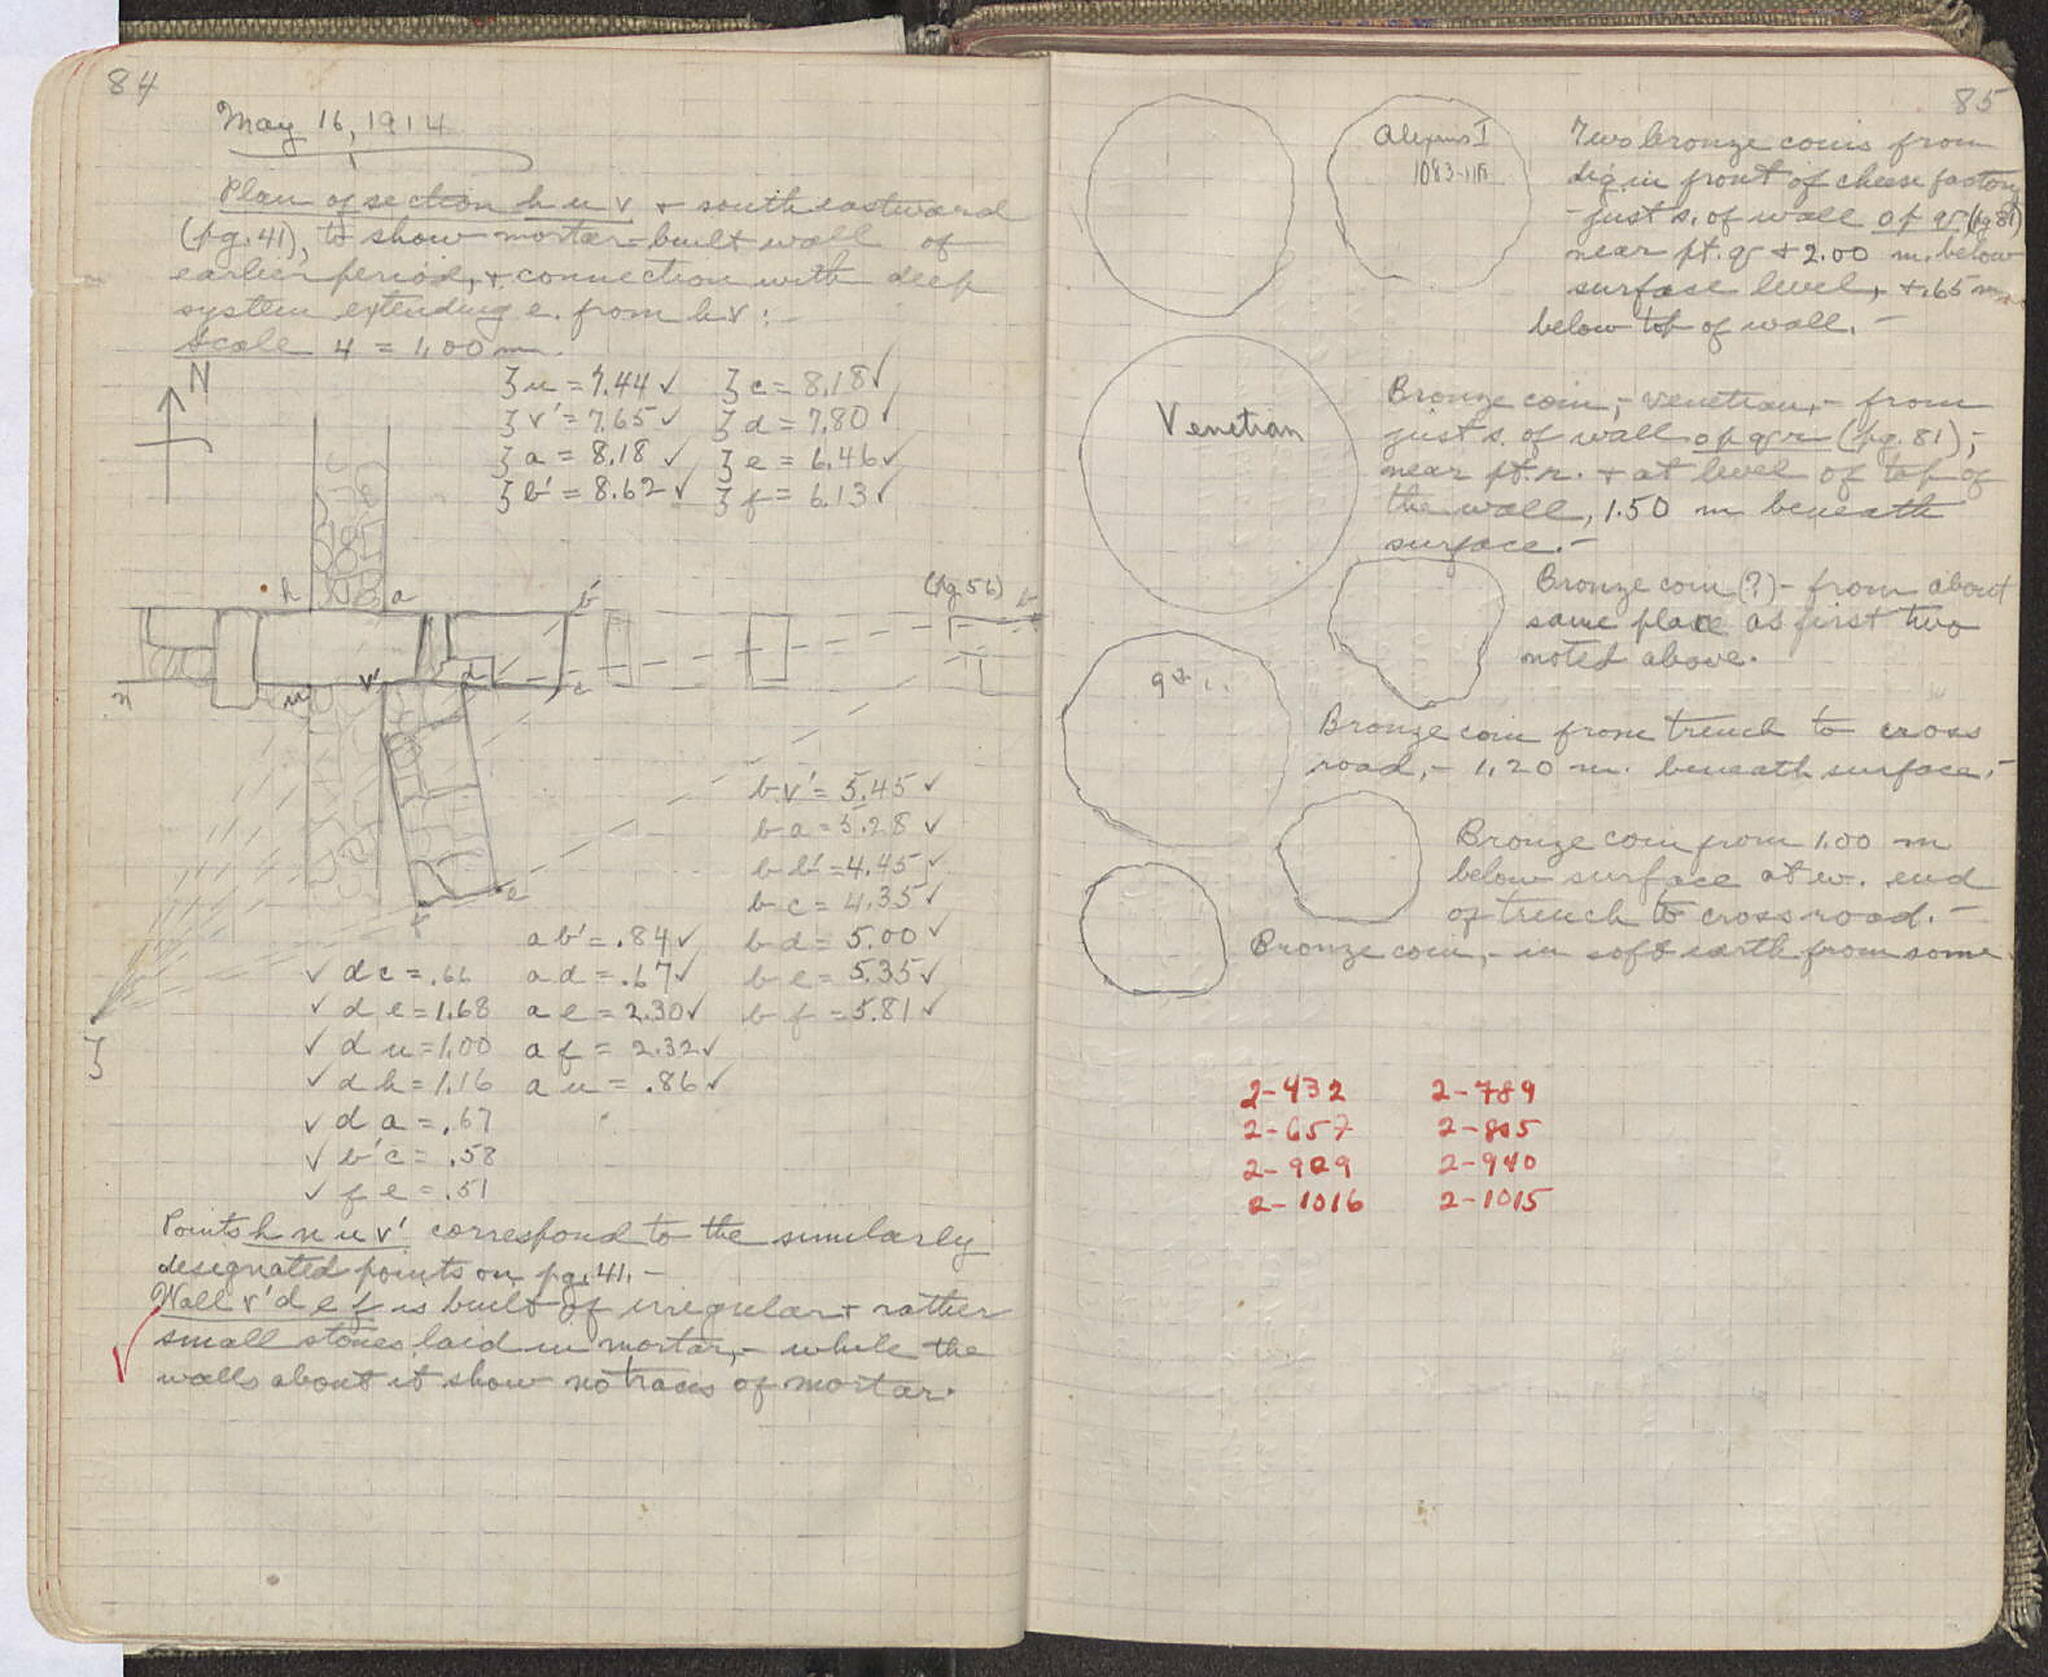 84
May 16, 1914
Plan of section h u v + southeastward
(pg. 41), to show mortar-built wall of
earlier period, + connection with deep
system extending e. from h v :-
Scale 4 = 1.00 m.
N
ζ u = 7.44 ✓ ζ c = 8.18 ✓
ζ v' = 7.65 ✓ ζ d = 7.80 ✓
ζ a = 8.18 ✓ ζ e = 6.46 ✓
ζ b' = 8.62 ✓ ζ f = 6.13 ✓
h a b' (pg. 56) b
n u v' d c
e
f
ζ
b v' = 5.45 ✓
b a = 5.28 ✓
b b' = 4.45 ✓
b c = 4.35 ✓
a b' = .84 ✓ b d = 5.00 ✓
✓ d c = .66 a d = .67 ✓ b e = 5.35 ✓
✓ d e = 1.68 a e = 2.30 ✓ b f = 5.81 ✓
✓ d u = 1.00 a f = 2.32 ✓
✓ d h = 1.16 a u = .86 ✓
✓ d a = .67
✓ b' c = .58
✓ f e = .51
Points h n u v' correspond to the similarly
designated points on pg. 41. -
Wall v' d e f is built of irregular + rather
small stones laid in mortar, - while the
walls about it show no traces of mortar.
85
Alexius I
1083-
Two bronze coins from
dig in front of cheese factory
- just s. of wall o p q r (pg 81)
near pt. q + 2.00 m. below
surface level, + .65 m.
below top of wall. -
Venetian
Bronze coin, - venetian, - from
just s. of wall o p q r (pg. 81), -
near pt. r. + at level of top of
the wall, 1.50 m beneath
surface. -
Bronze coin (?) - from about
same place as first two
noted above.
Bronze coin from trench to cross
road, - 1.20 m. beneath surface. -
Bronze coin from 1.00 m
below surface at w. end
of trench to cross road. -
Bronze coin, - in soft earth from some
2-432 2-789
2-657 2-805
2-929 2-940
2-1016 2-1015